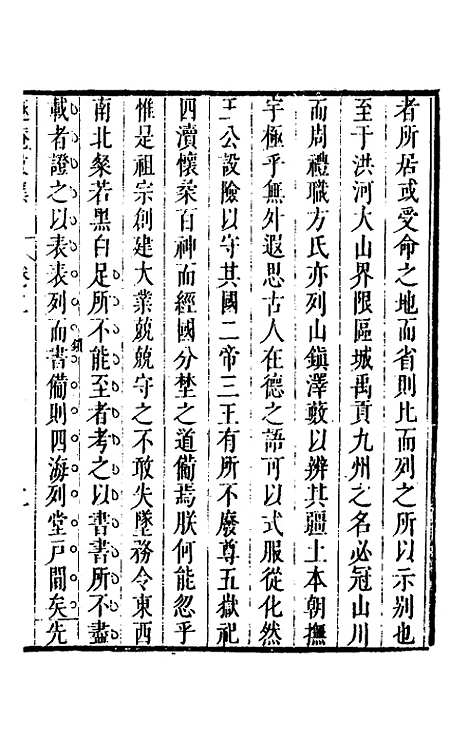 者所居或受命之地而省則比而列之所以示别也
至于洪河大山界限區域禹貢九州之名必冠山川
而周禮職方氏亦列山鎭澤藪以辨其疆土本朝撫
宇極乎無外遐思古人在德之語可以式服從化然
王公設險以守其國二帝三王有所不廢尊五嶽祀
四瀆懷柔百神而經國分埜之道備焉朕何能忽乎
惟是祖宗創建大業兢兢守之不敢失墜務令東西
南北粲若黑白足所不能至者考之以書書所不盡
載者證之以表表列而書備則四海列堂戸間矣先
文集 卷之